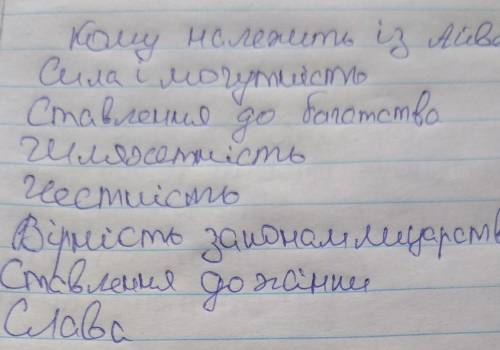 Кому належить із Айв
Сила і могутність
Ставлення до богатства
Шляхетність
Честність
Вірність законам лицарств
Ставлення до жінки
Слава